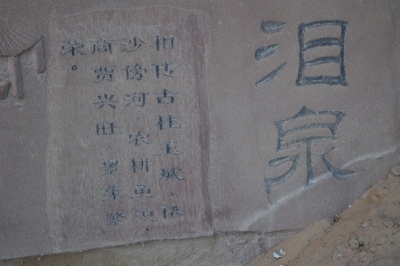 泪泉
相传古桂王城，
沙傍河，农耕鱼
商贾兴旺，繁
荣。